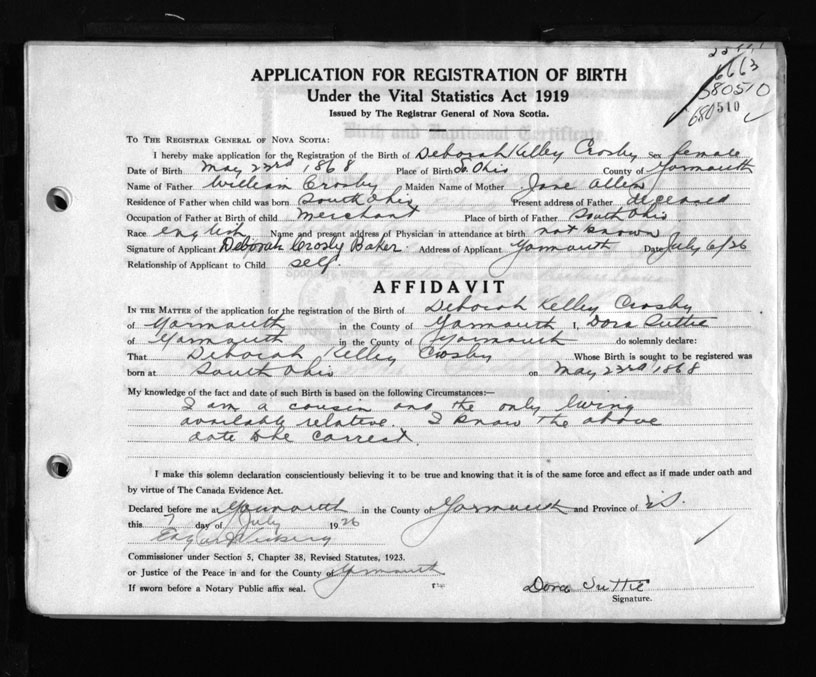 6663
580510
APPLICATION FOR REGISTRATION OF BIRTH
680510
Under the Vital Statistics Act 1919
Issued by The Registrar General of Nova Scotia.
Birth and Baptismal Certificate.
TO THE REGISTRAR GENERAL OF NOVA SCOTIA:
I hereby make application for the Registration of the Birth of Deborah Kelley Crosby Sex female
Date of Birth May 23rd 1868 Place of Birth So. Ohio County of Yarmouth
Name of Father William Crosby Maiden Name of Mother Jane Allen
Residence of Father when child was born South Ohio Present address of Father deceased
Occupation of Father at Birth of child merchant Place of birth of Father South Ohio
Race english Name and present address of Physician in attendance at birth not known
Signature of Applicant Deborah Crosby Baker. Address of Applicant Yarmouth Date July 6/26
Relationship of Applicant to Child self.
AFFIDAVIT
IN THE MATTER of the application for the registration of the Birth of Deborah Kelley Crosby
of Yarmouth in the County of Yarmouth I, Dora Suttie
of Yarmouth in the County of Yarmouth do solemnly declare:
That Deborah Kelley Crosby Whose Birth is sought to be registered was
born at South Ohio on May 23rd 1868
My knowledge of the fact and date of such Birth is based on the following Circumstances:—
I am a cousin and the only living
available relative. I know the above
date to be correct.
I make this solemn declaration conscientiously believing it to be true and knowing that it is of the same force and effect as if made under oath and
by virtue of The Canada Evidence Act.
Declared before me at Yarmouth in the County of Yarmouth and Province of N.S.
this 7 day of July 1926
Commissioner under Section 5, Chapter 38, Revised Statutes, 1923.
or Justice of the Peace in and for the County of Yarmouth
If sworn before a Notary Public affix seal.
Dora Suttie
Signature.